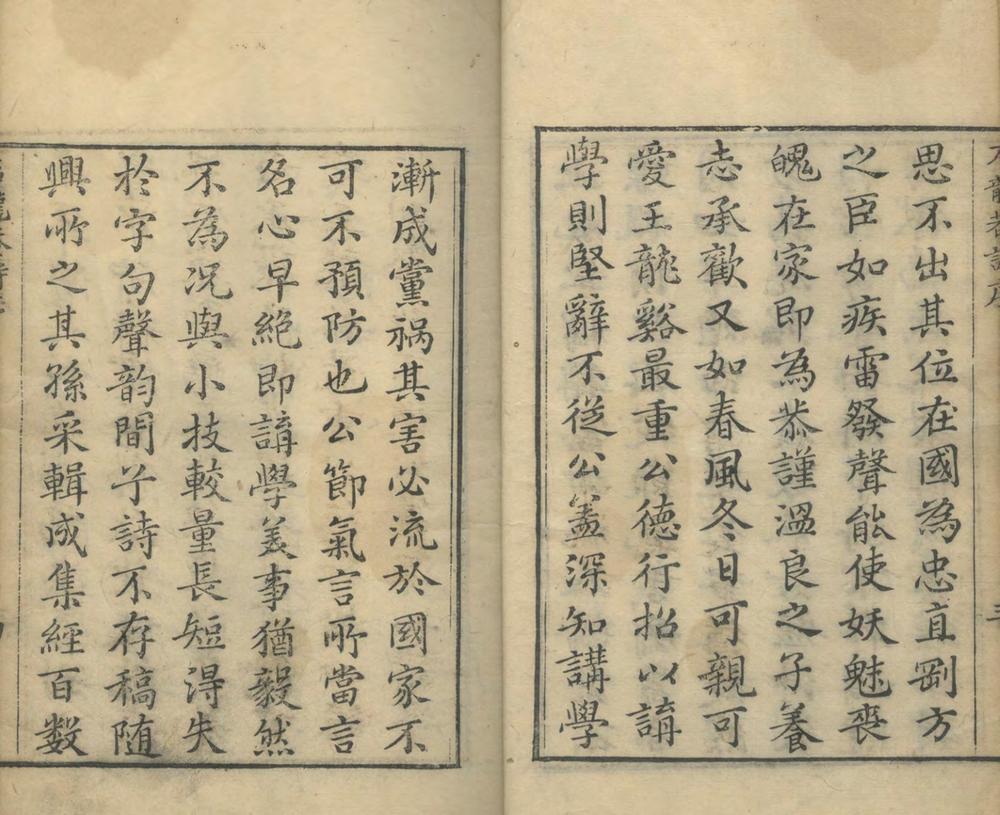 思不出其位在國為忠直剛方
之臣如疾雷發聲能使妖魅喪
魄在家即為恭謹溫良之子養
志承歡又如春風冬日可親可
愛王龍谿最重公德行招以講
學則堅辭不從公蓋深知講學
漸成黨禍其害必流於國家不
可不預防也公節氣言所當言
名心早絕即講學美事猶毅然
不為况與小技較量長短得失
於字句聲韵間乎詩不存稿隨
興所之其孫采輯成集經百數